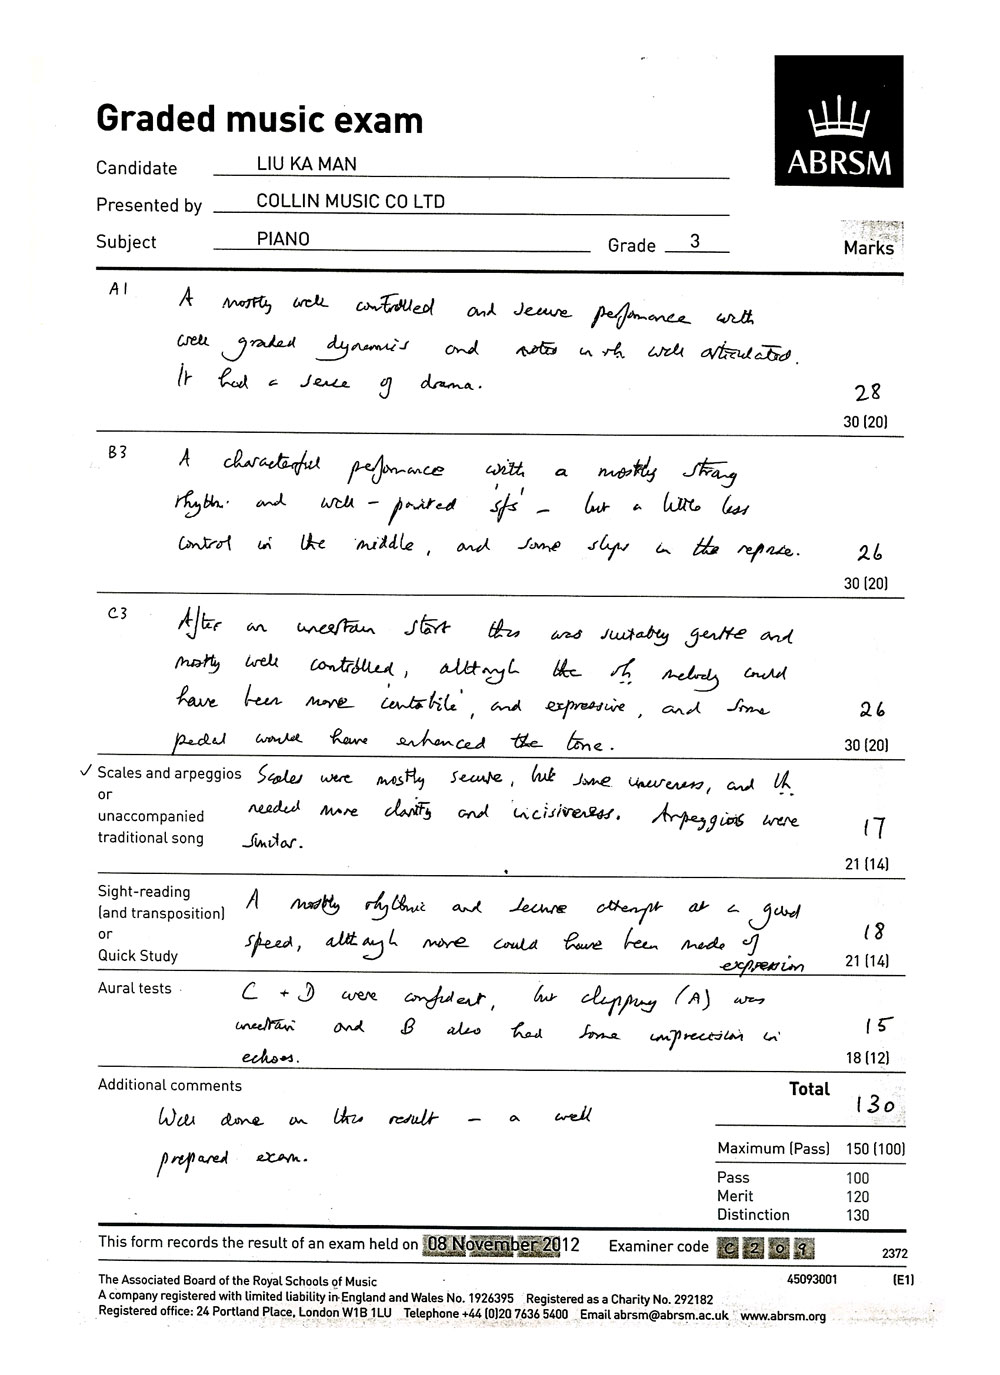 Graded music exam
ABRSM
Candidate LIU KA MAN
Presented by COLLIN MUSIC CO LTD
Subject PIANO Grade 3
Marks
A1 A mostly well controlled and secure performance with
well graded dynamics and notes in rh well articulated.
It had a sense of drama.
28
30 (20)
B3 A characterful performance with a mostly strong
rhythm and well-pointed 'sfs' - but a little less
control in the middle, and some slips in the reprise.
26
30 (20)
C3 After an uncertain start this was suitably gentle and
mostly well controlled, although the rh melody could
have been more 'cantabile', and expressive, and some
pedal would have enhanced the tone.
26
30 (20)
✓ Scales and arpeggios
or
unaccompanied
traditional song
Scales were mostly secure, but some unevenness, and lh
needed more clarity and incisiveness. Arpeggios were
similar.
17
21 (14)
Sight-reading
(and transposition)
or
Quick Study
A mostly rhythmic and secure attempt at a good
speed, although more could have been made of
expression
18
21 (14)
Aural tests
C + D were confident, but clapping (A) was
uncertain and B also had some imprecision in
echoes.
15
18 (12)
Additional comments
Well done on this result - a well
prepared exam.
Total 130
Maximum (Pass) 150 (100)
Pass 100
Merit 120
Distinction 130
This form records the result of an exam held on 08 November 2012 Examiner code C 2 0 9 2372
The Associated Board of the Royal Schools of Music 45093001 (E1)
A company registered with limited liability in England and Wales No. 1926395 Registered as a Charity No. 292182
Registered office: 24 Portland Place, London W1B 1LU Telephone +44 (0)20 7636 5400 Email abrsm@abrsm.ac.uk www.abrsm.org